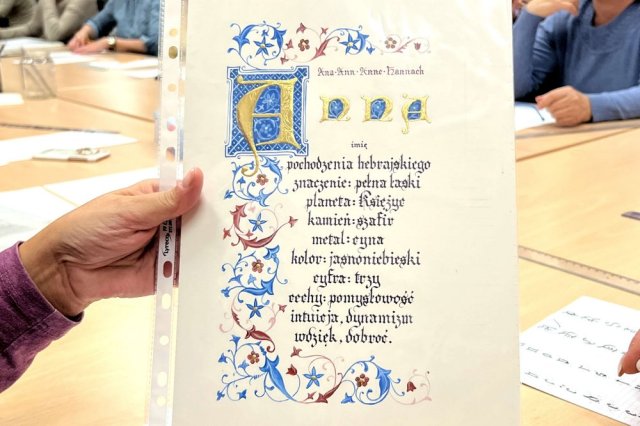 Ana · Ann · Anne · Hannach
Anna
imię
pochodzenia hebrajskiego
znaczenie: pełna łaski
planeta: Księżyc
kamień: szafir
metal: cyna
kolor: jasnoniebieski
cyfra: trzy
cechy: pomysłowość
intuicja, dynamizm
wdzięk, dobroć.